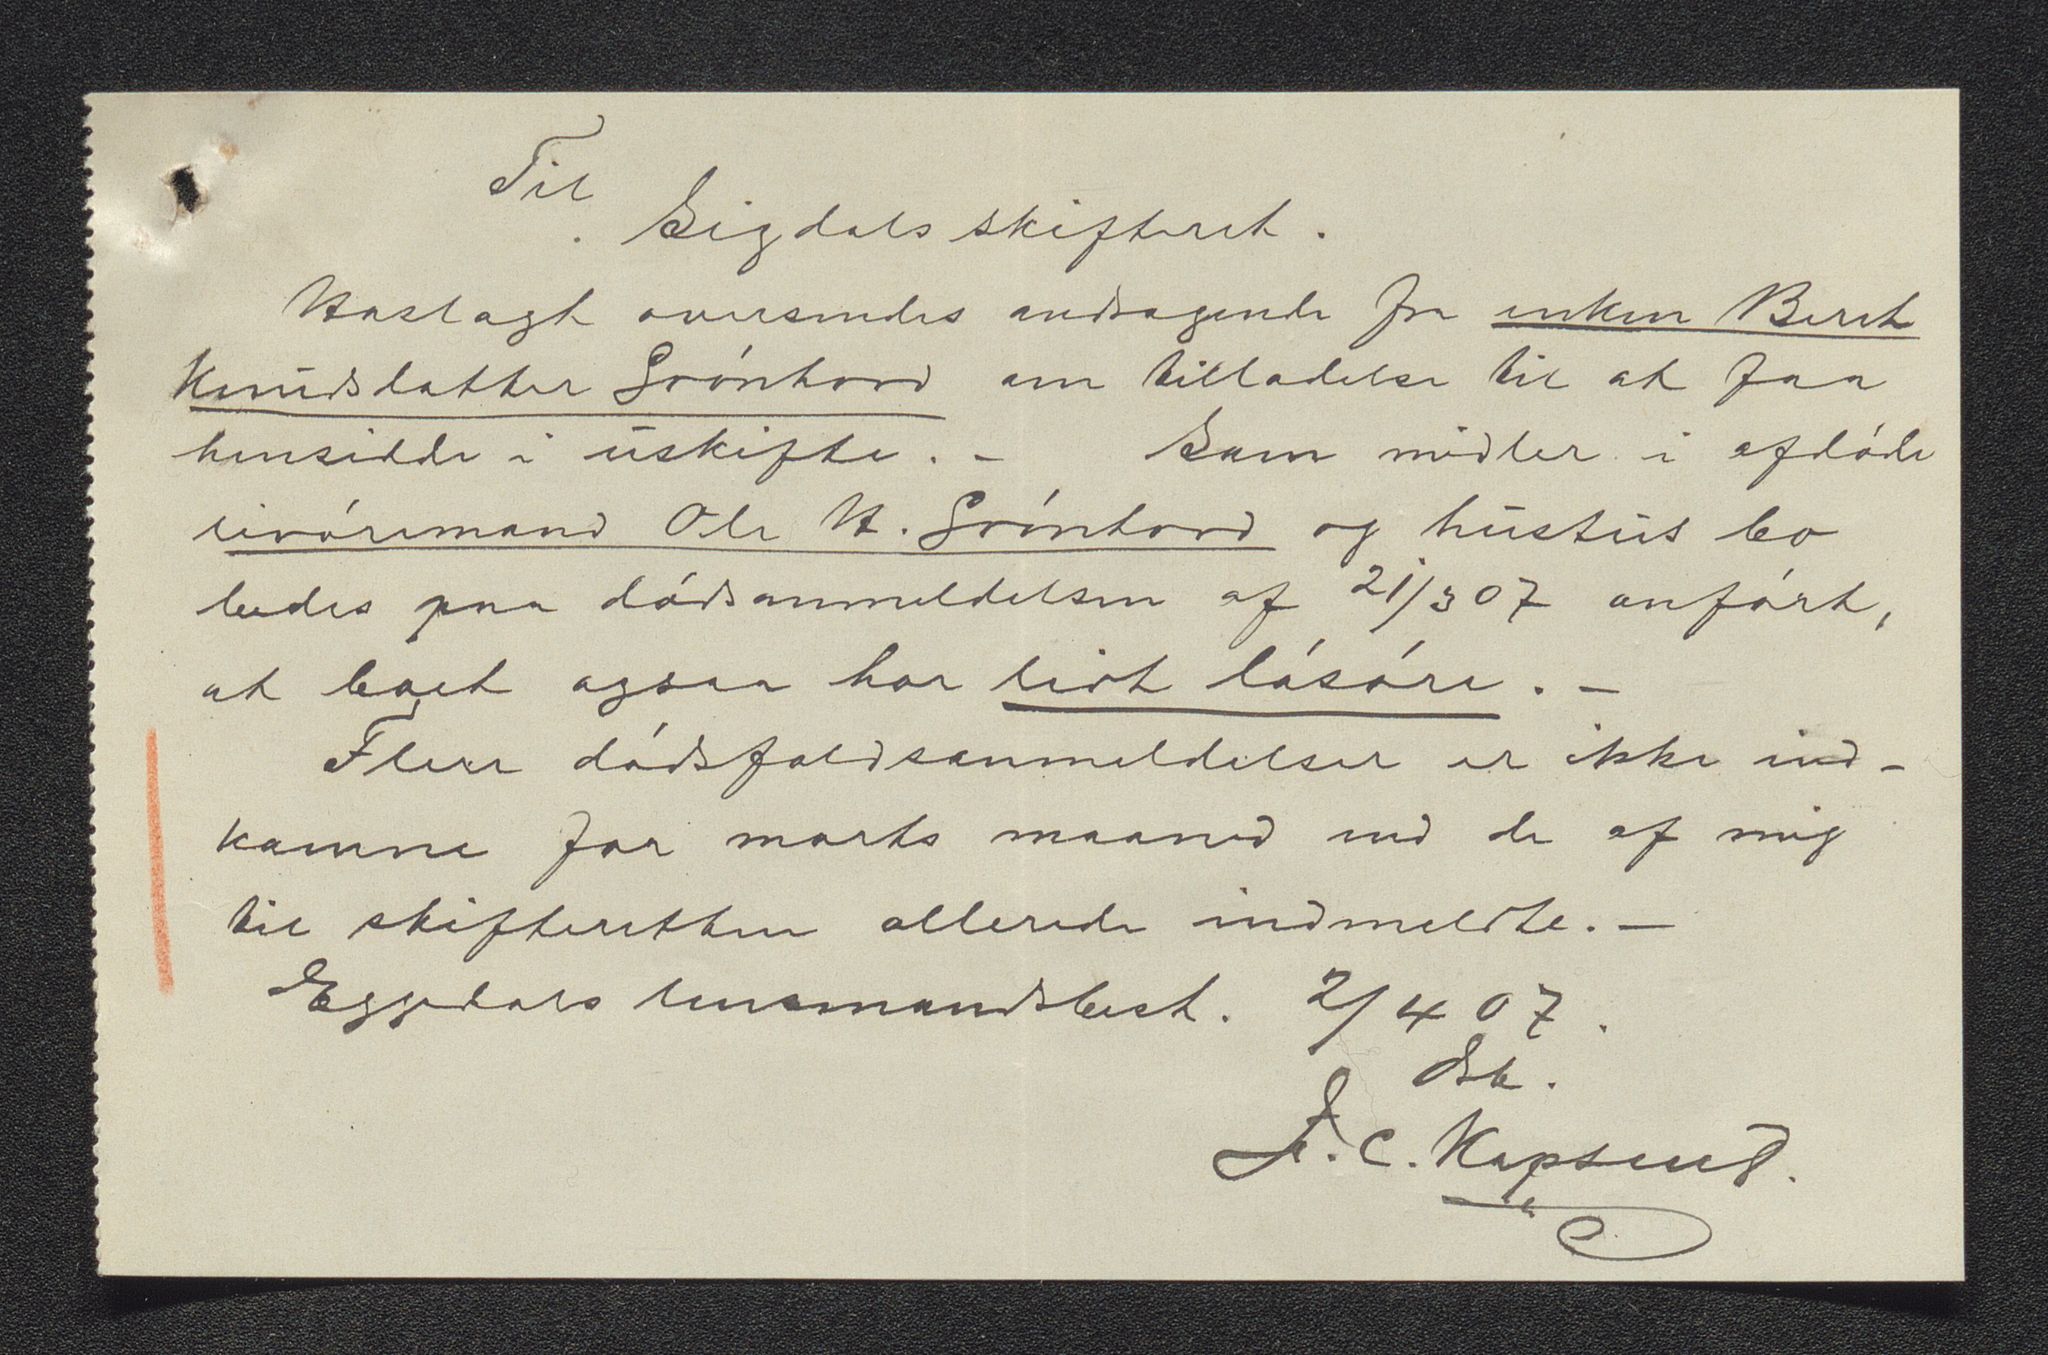 Til
Sigdals skifteret.
Vedlagt oversendes andragende fra enken Beret
Knudsdatter Grónhovd om tilladelse til at faa
hensidde i uskifte. – Som midler i afdóde
livóremand Ole K. Grónhovd og hustrus bo
bedes paa dódsanmeldelsen af 21/3 07 anfórt,
at boet ogsaa har lidt lósóre. –
Flere dódsfaldsanmeldelser er ikke ind-
komne for marts maaned end de af mig
til skifteretten allerede indmeldte. –
Eggedals lensmandsbest. 2/4 07.
F. C. Kopseng.